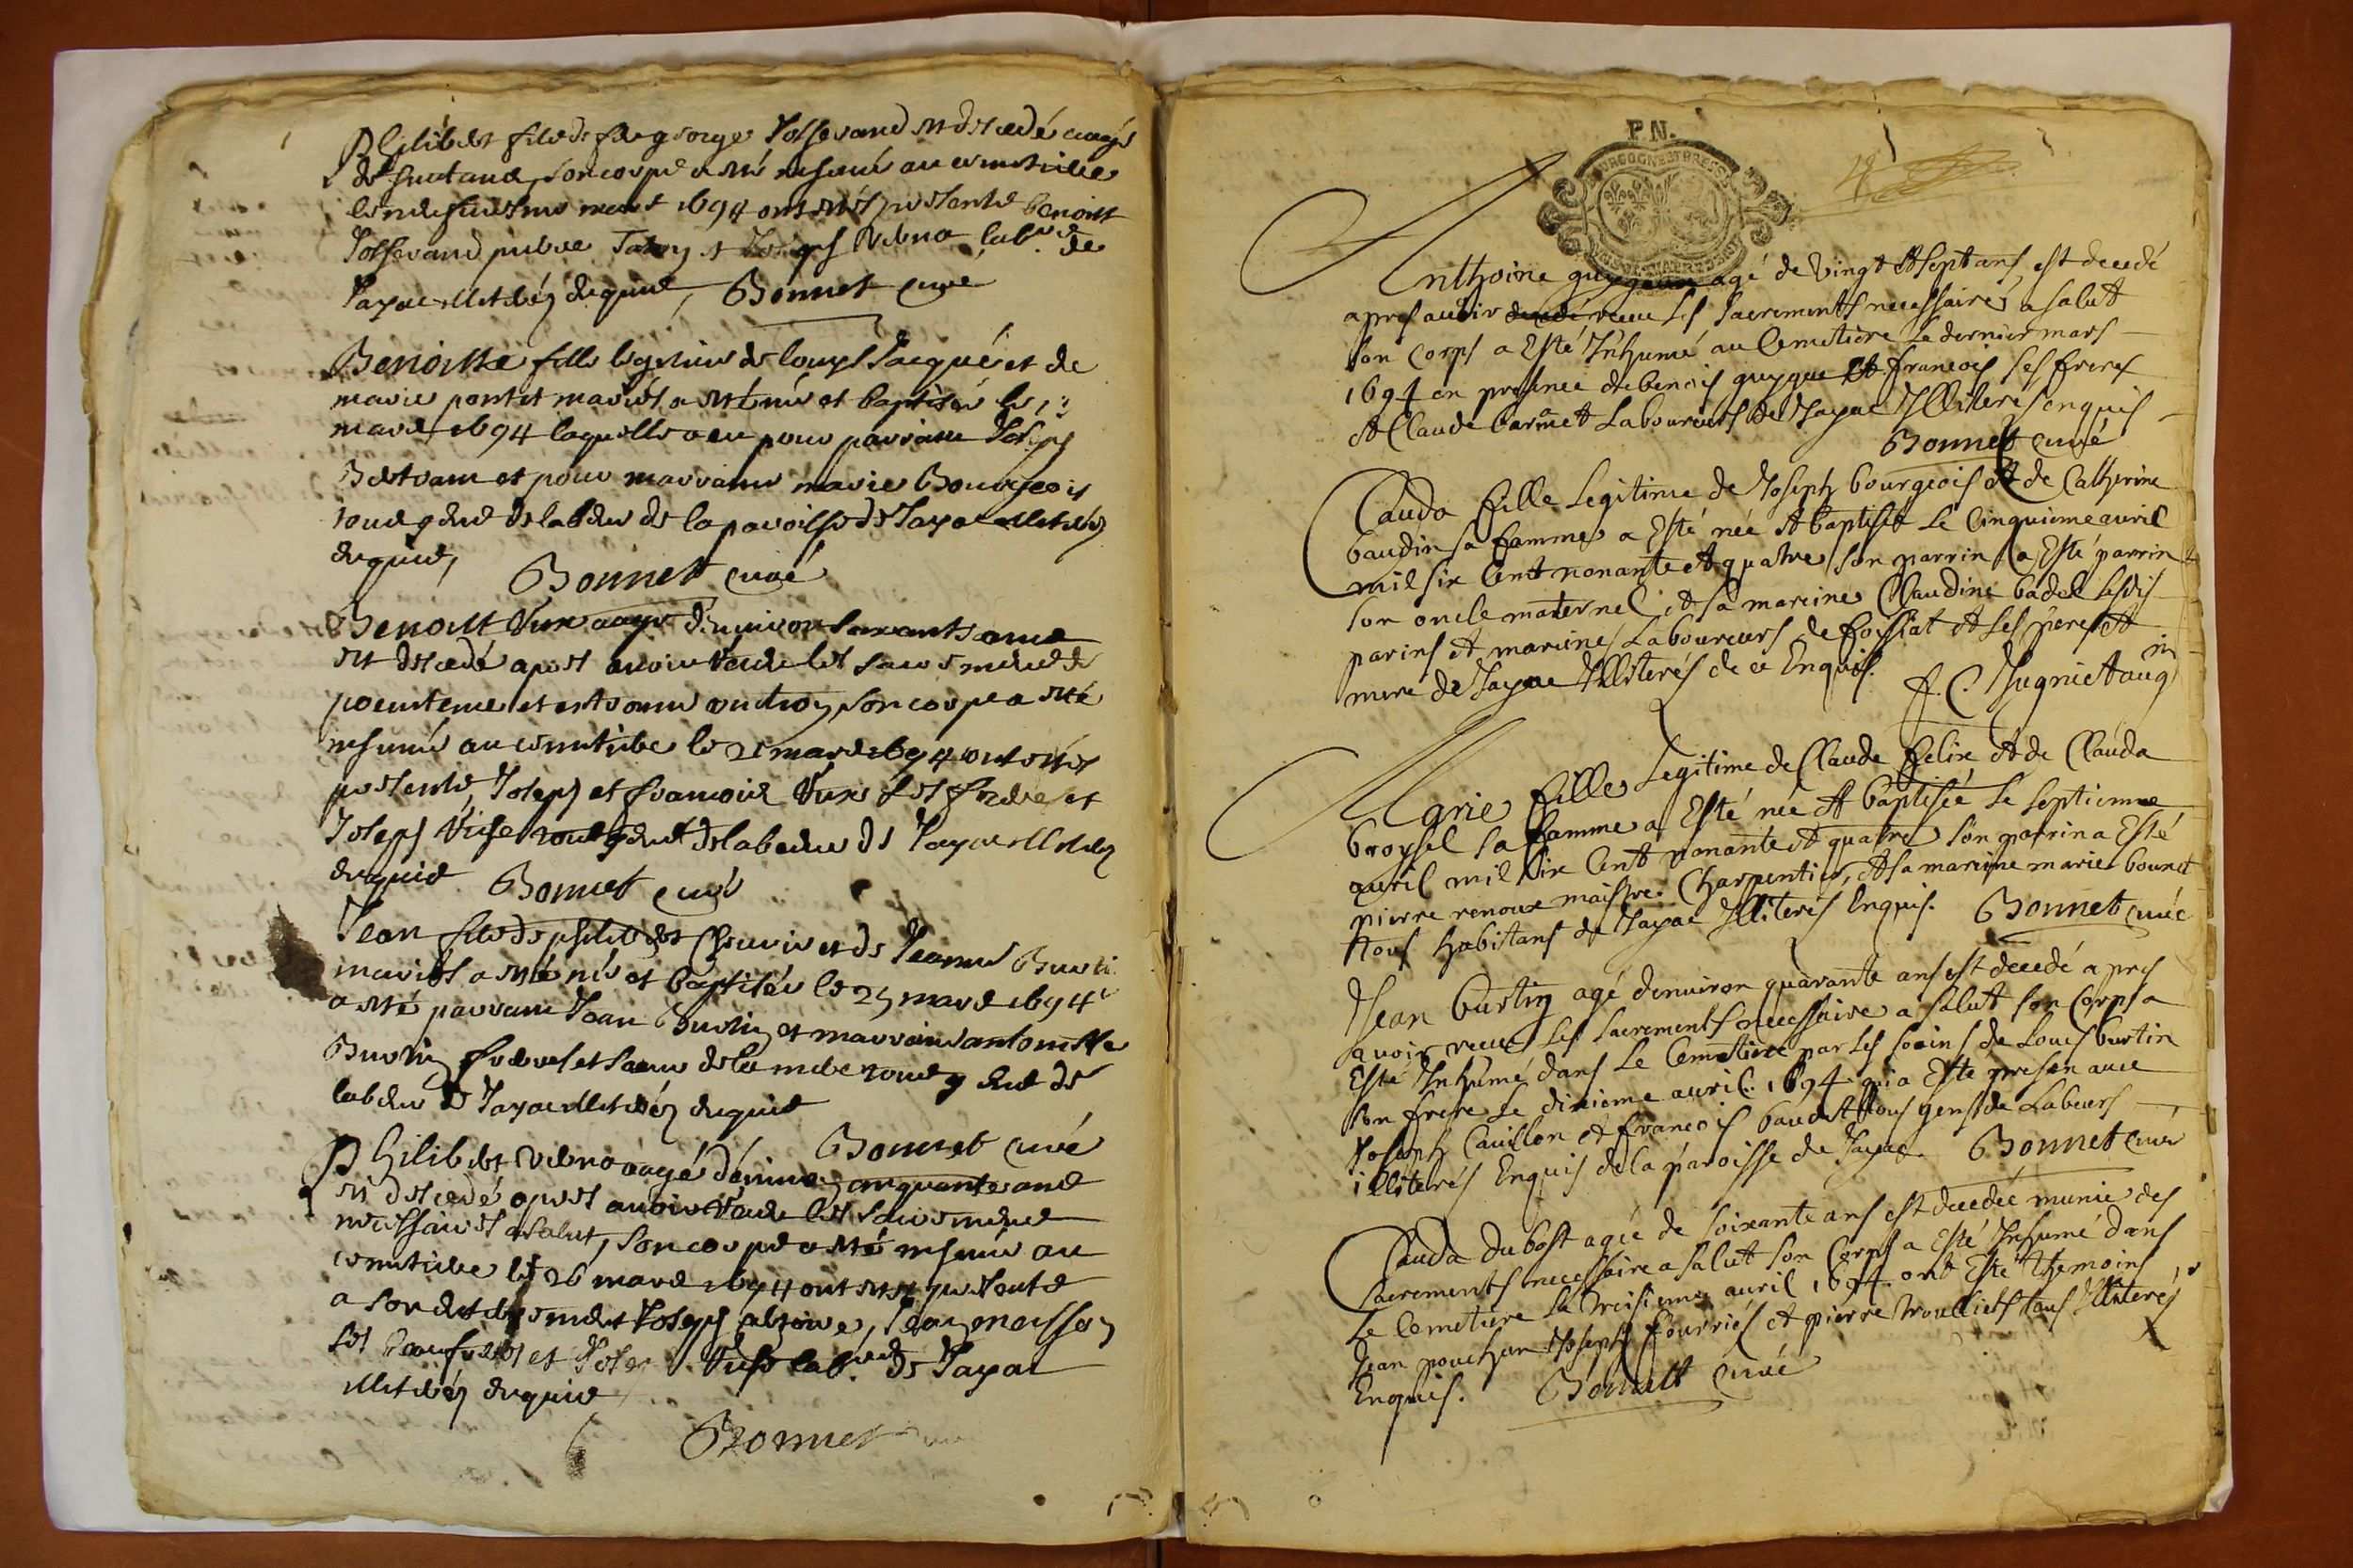 Philibert fils de feu george Josserand est decedé aagé
de huictans, son corps a esté inhumé au cemetiere
mars 1694 ont estés presents benoist
Josserand Joseph Verno lab.rs de
Jayac illiterés enquis, Bonnet curé
Benoitte fille legitime de louys Jacqué et de
marie pontet mariés a esté née et baptisée le
mars 1694 laquelle a eu pour parrain Joseph
Bertram et pour marraine marie Bourgeois
tous gens de labeur de la paroisse de Jayac illiterés
enquis, Bonnet curé
Benoist aagé d'environ ans
est decedé apres avoir receu les sacrements de
penitence et extreme onction, son corps a esté
inhumé au cemetiere le 21 mars 1694 ont estés
presents, Joseph et francois ses freres et
Joseph tous gens de labeur de Jayac illiterés
enquis Bonnet curé
Jean fils de philibert et de Jeanne Burtin
mariés a esté né et baptisé le 25 mars 1694
a esté parrain Jean Burtin et marraine antoinette
Burtin freres et soeur de la mere tous gens de
labeur de Jayac illiterés enquis
Bonnet curé
Philibert Verno aagé d'environ cinquante ans
est decedé apres avoir receu les sacrements
necessaires a salut, son corps a esté inhumé au
cemetiere le 26 mars 1694 ont estés presents
a son enterrement Joseph Jean moisson
ses beaufreres et lab.rs de Jayac
illiterés enquis
Bonnet
P.N.
BOURGOGNE ET BRESSE
Anthoine guygue agé de vingt et sept ans est decedé
apres avoir receu les sacrements necessaires a salut
son corps a Esté Inhumé au Cemetiere le dernier mars
1694 en presence de benois guygue et francois ses freres
et Claude Carmet Laboureurs de Jayac Illiterés enquis
Bonnet curé
Clauda fille Legitime de Joseph bourgeois et de Catherine
baudin sa famme a Esté née et baptisée le Cinquieme avril
mil six Cent nonante et quatre son parrin a Esté parrin
son oncle maternel et sa marine Claudine badel lesdis
parins et marines Laboureurs de foissiat et les pere et
mere de Jayac Illiterés de ce Enquis.
Marie fille Legitime de Claude felix et de Clauda
broysel sa famme a Esté née et baptisée le septieme
avril mil six Cent nonante et quatre son parrin a Esté
pierre renoux maistre Charpentier, et sa marine marie bonnet
tous habitans de Jayac Illiterés Enquis. Bonnet curé
Jean burtin agé denviron quarante ans est decedé apres
avoir receu les sacrements necessaire a salut son Corps a
Esté Inhumé dans le Cemetiere par les soins de Louis burtin
son frere le dixieme avril. 1694 qui a Esté presen avec
Joseph Cavillon et francois baudet tous gens de Labeurs
illiterés Enquis de la paroisse de Jayac. Bonnet curé
Clauda dubost agée de soixante ans est decedée munie des
sacrements necessaire a salut son Corps a Esté Inhumé dans
le Cemetiere le troisieme avril 1694. ont Esté themoins
Jean Joseph fourriés et pierre trouilliets tous Illiterés
Enquis. Bonnett curé